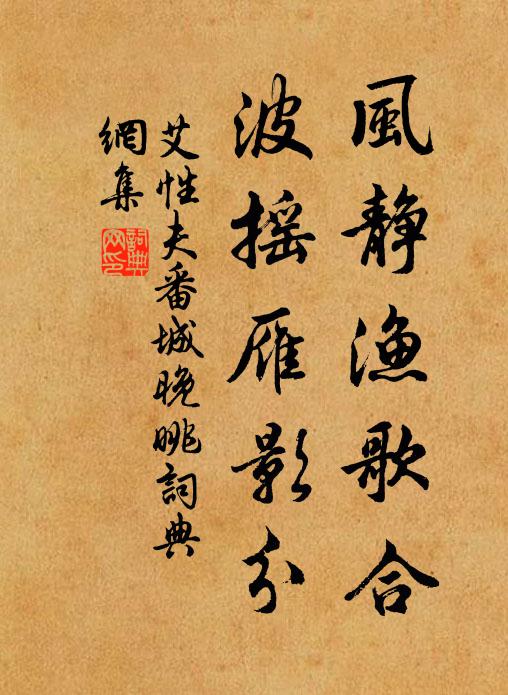 風靜漁歌合
波摇雁影分
艾性夫番城晚眺詞典
網集
詞典網印